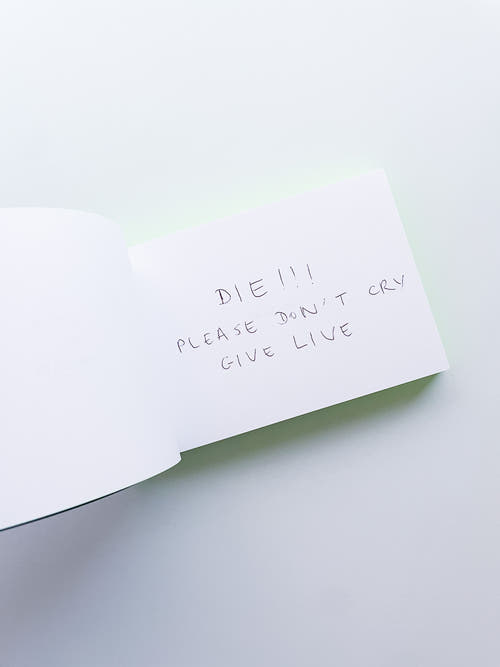 DIE!!!
PLEASE DON'T CRY
GIVE LIVE